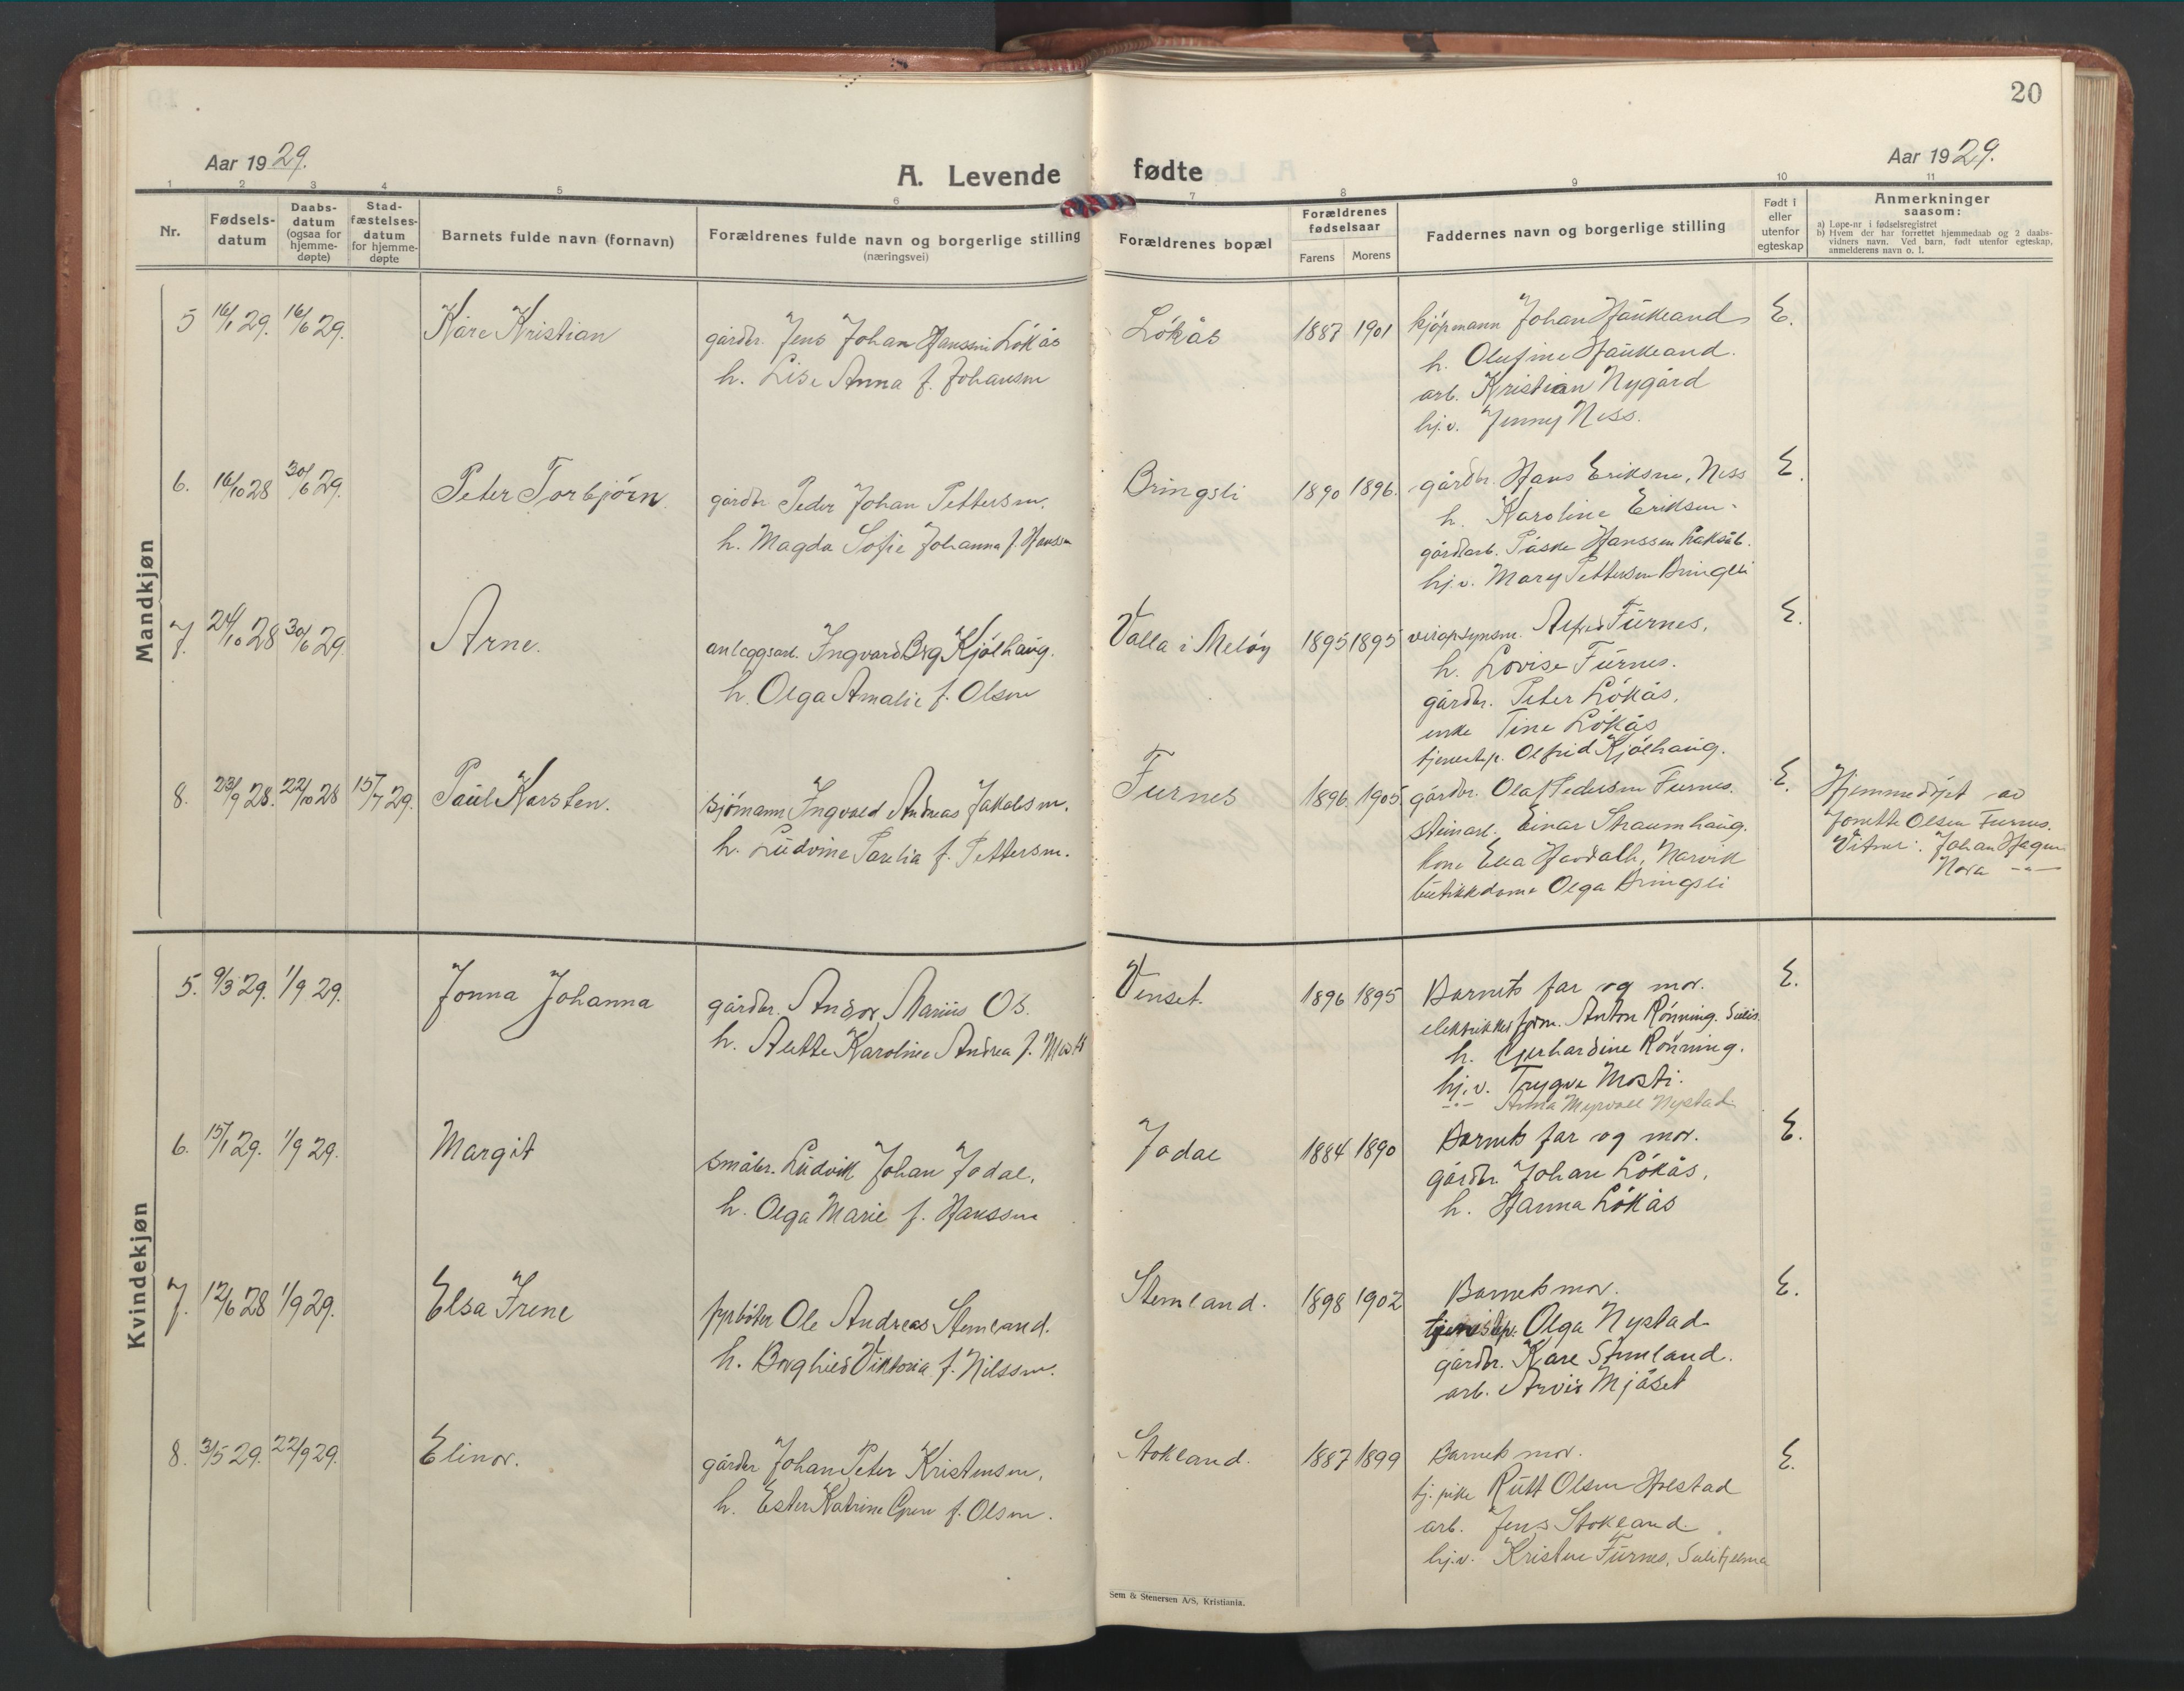 20
Aar 1929.
A. Levende fødte
Aar 1929.
1 2 3 4 5 6 7 8 9 10 11
Nr.
Fødselsdatum
Daabsdatum (ogsaa for hjemmedøpte)
Stadfæstelsesdatum for hjemmedøpte
Barnets fulde navn (fornavn)
Forældrenes fulde navn og borgerlige stilling
(næringsvei)
Forældrenes bopæl
Forældrenes fødselsaar
Farens Morens
Faddernes navn og borgerlige stilling
Født i eller utenfor egteskap
Anmerkninger
saasom:
a) Løpe-nr i fødselsregistret
b) Hvem der har forrettet hjemmedaab og 2 daabsvidners navn. Ved barn, født utenfor egteskap, anmelderens navn o. l.
Mandkjøn
5 16/1 29. 16/6 29. Kåre Kristian
gårdbr. Jens Johan Hanssen Lökås
h. Lise Anna f. Johansen
Lökås 1887 1901
kjöpmann Johan Haukeland
h. Olufine Haukeland.
arb. Kristian Nygård
hj.v. Jenny Ness.
E.
6. 16/10 28 30/6 29. Peter Torbjörn.
gårdbr. Peder Johan Pettersen.
h. Magda Sofie Johanna f. Hanssen
Bringsli 1890 1896.
gårdbr. Hans Eriksen, Ness
h. Karoline Eriksen.
gårdarb. Påske Hanssen
hj.v. Mary Pettersen Bringsli
E.
7. 24/10 28 30/6 29. Arne.
anleggsarb. Ingvard Berg Kjölhaug.
h. Olga Amalie f. Olsen
Valla i Melöy 1895 1895
veiopsynsm. Alfred Furnes.
h. Lovise Furnes.
gårdbr. Peter Lökås.
enke Tine Lökås
tjenestep. Olfrid Kjölhaug.
E.
8. 23/9 28. 22/10 28 15/7 29. Paul Karsten.
sjömann Ingvald Andreas Jakobsen.
h. Ludvine Parelia f. Pettersen.
Furnes 1896. 1905
gårdbr. Olaf Pedersen Furnes.
steinarb. Einar Straumhaug.
kone Ella Hardalh, Narvik
butikkdame Olga Bringsli
E.
Hjemmedöpt av
Jonette Olsen Furnes.
Vitner: Johan Hagen
Nora -"-
Kvindekjøn
5. 9/3 29. 1/9 29. Jonna Johanna
gårdbr. Andor Marius Os.
h. Alette Karoline Andrea f. Mosti
Venset. 1896 1895
Barnets far og mor.
elektrikerform. Anton Rönning. Sulis.
h. Gerhardine Rönning.
hj.v. Trygve Mosti.
-"- Anna Myrvoll Nystad
E.
6. 15/1 29. 1/9 29. Margit
småbr. Ludvik Johan Jodal.
h. Olga Marie f. Hanssen
Jodal 1884 1890
Barnets far og mor.
gårdbr. Johan Lökås.
h. Hanna Lökås
E.
7. 12/6 28 1/9 29. Elsa Irene
fyrböter Ole Andreas Stemland.
h. Borghild Viktoria f. Nilssen.
Stemland. 1898 1902
Barnets mor.
tjenestep. Olga Nystad
gårdbr. Kåre Stemland.
arb. Arvid Mjåset
E.
8. 3/5 29. 22/9 29. Elinor.
gårdbr Johan Peter Kristensen.
h. Ester Katrine f. Olsen.
Stokland. 1887 1899
Barnets mor.
tj. pike Rutt Olsen Holstad
arb. Jens Stokland.
hj.v. Kristine Furnes, Sulitjelma
E.
Sem & Stenersen A/S, Kristiania.